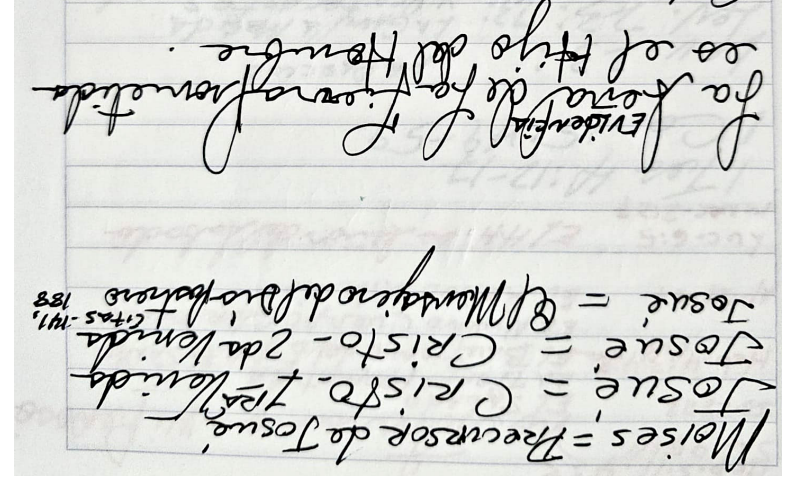 Moises = Precursor de Josué
Josué = CRisto - 1RA Venida
Josué = CRisto - 2da Venida
Josué = El Mensajero del Dia Postrero
+ Citas - 141,
188
Evidencia
La Seña de la Tierra Prometida
es el Hijo del Hombre.